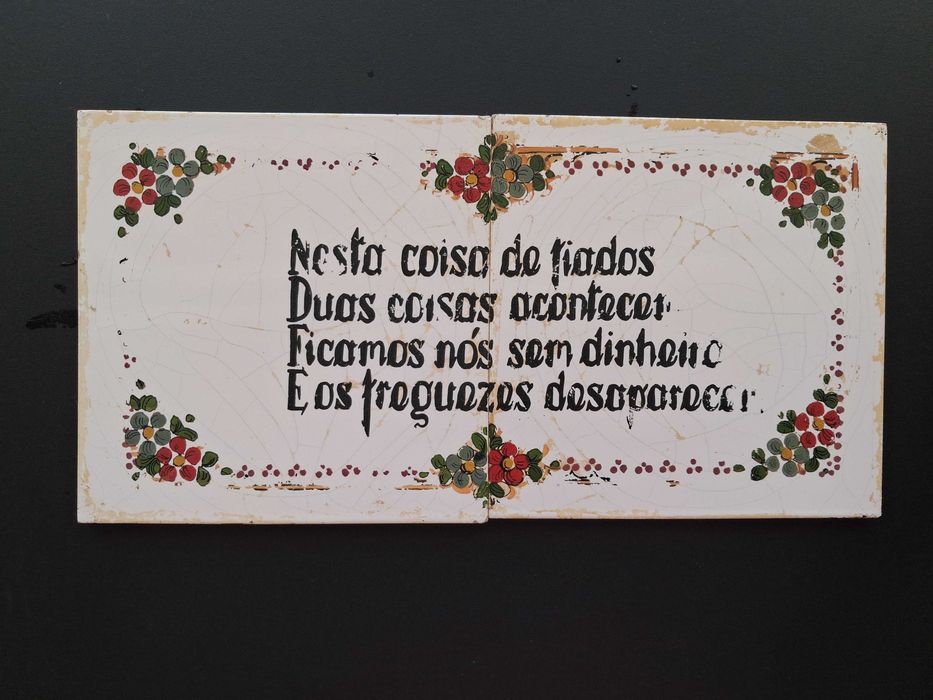 Nesta coisa de fiados
Duas coisas acontecem
Ficamos nós sem dinheiro
E os freguezes desaparecem